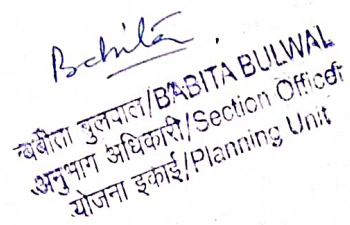 Babita
बबीता बुलवाल/BABITA BULWAL
अनुभाग अधिकारी/Section Officer
योजना इकाई/Planning Unit